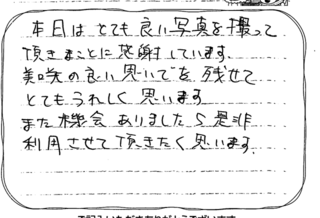 本日はとても良い写真を撮って
頂きまことに感謝しています。
美咲の良い思いでを残せて
とてもうれしく思います
また機会ありましたら是非
利用させて頂きたく思います。